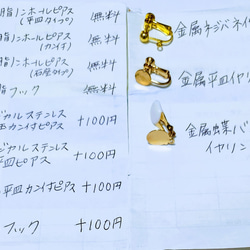 脂ノンホールピアス
(平皿タイプ) 無料
脂ノンホールピアス
(カン付) 無料
脂ノンホールピアス
(石座タイプ) 無料
脂フック 無料
ジカルステンレス
カン付ピアス +100円
ジカルステンレス
平皿ピアス +100円
平皿カン付ピアス +100円
フック +100円
金属ネジバネイヤ
金属平皿イヤリ
金属蝶バ
イヤリン